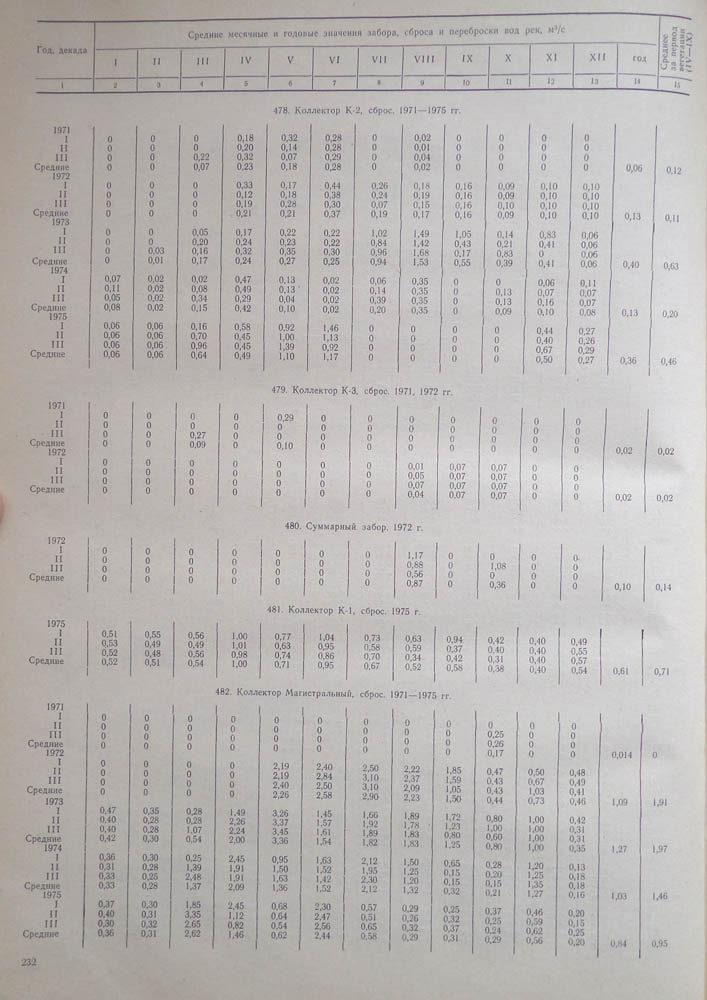 Год, декада
Средние месячные и годовые значения забора, сброса и переброски вод рек, м³/с
Среднее за период вегетации (IV—IX)
I II III IV V VI VII VIII IX X XI XII год
1 2 3 4 5 6 7 8 9 10 11 12 13 14 15
478. Коллектор К-2, сброс. 1971—1975 гг.
1971
I 0 0 0 0,18 0,32 0,28 0 0,02 0 0 0 0
II 0 0 0 0,20 0,14 0,28 0 0,01 0 0 0 0
III 0 0 0,22 0,32 0,07 0,29 0 0,04 0 0 0 0
Средние 0 0 0,07 0,23 0,18 0,28 0 0,02 0 0 0 0 0,06 0,12
1972
I 0 0 0 0,33 0,17 0,44 0,26 0,18 0,16 0,09 0,10 0,10
II 0 0 0 0,12 0,18 0,38 0,24 0,19 0,16 0,09 0,10 0,10
III 0 0 0 0,19 0,28 0,30 0,07 0,15 0,16 0,10 0,10 0,10
Средние 0 0 0 0,21 0,21 0,37 0,19 0,17 0,16 0,09 0,10 0,10 0,13 0,11
1973
I 0 0 0,05 0,17 0,22 0,22 1,02 1,49 1,05 0,14 0,83 0,06
II 0 0 0,20 0,24 0,23 0,22 0,84 1,42 0,43 0,21 0,41 0,06
III 0 0,03 0,16 0,32 0,35 0,30 0,96 1,68 0,17 0,83 0 0,06
Средние 0 0,01 0,17 0,24 0,27 0,25 0,94 1,53 0,55 0,39 0,41 0,06 0,40 0,63
1974
I 0,07 0,02 0,02 0,47 0,13 0,02 0,06 0,35 0 0 0,06 0,11
II 0,11 0,02 0,08 0,49 0,13 0,02 0,14 0,35 0 0,13 0,07 0,07
III 0,05 0,02 0,34 0,29 0,04 0,02 0,39 0,35 0 0,13 0,16 0,07
Средние 0,08 0,02 0,15 0,42 0,10 0,02 0,20 0,35 0 0,09 0,10 0,08 0,13 0,20
1975
I 0,06 0,06 0,16 0,58 0,92 1,46 0 0 0 0 0,44 0,27
II 0,06 0,06 0,70 0,45 1,00 1,13 0 0 0 0 0,40 0,26
III 0,06 0,06 0,96 0,45 1,39 0,92 0 0 0 0 0,67 0,29
Средние 0,06 0,06 0,64 0,49 1,10 1,17 0 0 0 0 0,50 0,27 0,36 0,46
479. Коллектор К-3, сброс. 1971, 1972 гг.
1971
I 0 0 0 0 0,29 0 0 0 0 0 0 0
II 0 0 0 0 0 0 0 0 0 0 0 0
III 0 0 0,27 0 0 0 0 0 0 0 0 0
Средние 0 0 0,09 0 0,10 0 0 0 0 0 0 0 0,02 0,02
1972
I 0 0 0 0 0 0 0 0,01 0,07 0,07 0 0
II 0 0 0 0 0 0 0 0,05 0,07 0,07 0 0
III 0 0 0 0 0 0 0 0,07 0,07 0,07 0 0
Средние 0 0 0 0 0 0 0 0,04 0,07 0,07 0 0 0,02 0,02
480. Суммарный забор, 1972 г.
1972
I 0 0 0 0 0 0 0 1,17 0 0 0 0
II 0 0 0 0 0 0 0 0,88 0 1,08 0 0
III 0 0 0 0 0 0 0 0,56 0 0 0 0
Средние 0 0 0 0 0 0 0 0,87 0 0,36 0 0 0,10 0,14
481. Коллектор К-1, сброс. 1975 г.
1975
I 0,51 0,55 0,56 1,00 0,77 1,04 0,73 0,63 0,94 0,42 0,40 0,49
II 0,53 0,49 0,49 1,01 0,63 0,95 0,58 0,59 0,37 0,40 0,40 0,55
III 0,52 0,48 0,56 0,98 0,74 0,86 0,70 0,34 0,42 0,31 0,40 0,57
Средние 0,52 0,51 0,54 1,00 0,71 0,95 0,67 0,52 0,58 0,38 0,40 0,54 0,61 0,71
482. Коллектор Магистральный, сброс. 1971—1975 гг.
1971
I 0 0 0 0 0 0 0 0 0 0 0 0
II 0 0 0 0 0 0 0 0 0 0,25 0 0
III 0 0 0 0 0 0 0 0 0 0,26 0 0
Средние 0 0 0 0 0 0 0 0 0 0,17 0 0 0,014 0
1972
I 0 0 0 0 2,19 2,40 2,50 2,22 1,85 0,47 0,50 0,48
II 0 0 0 0 2,19 2,84 3,10 2,37 1,59 0,43 0,67 0,49
III 0 0 0 0 2,40 2,50 3,10 2,09 1,05 0,43 1,03 0,41
Средние 0 0 0 0 2,26 2,58 2,90 2,23 1,50 0,44 0,73 0,46 1,09 1,91
1973
I 0,47 0,35 0,28 1,49 3,26 1,45 1,66 1,89 1,72 0,80 1,00 0,42
II 0,40 0,28 0,28 2,26 3,37 1,57 1,92 1,78 1,23 1,00 1,00 0,31
III 0,40 0,28 1,07 2,24 3,45 1,61 1,89 1,83 0,80 0,60 1,00 0,31
Средние 0,42 0,30 0,54 2,00 3,36 1,54 1,82 1,83 1,25 0,80 1,00 0,35 1,27 1,97
1974
I 0,36 0,30 0,25 2,45 0,95 1,63 2,12 1,50 0,65 0,28 1,20 0,13
II 0,31 0,28 1,39 1,91 1,50 1,52 1,95 1,25 0,15 0,20 1,25 0,18
III 0,33 0,25 2,48 1,91 1,63 1,42 2,30 1,20 0,15 0,15 1,35 0,18
Средние 0,33 0,28 1,37 2,09 1,36 1,52 2,12 1,32 0,32 0,21 1,27 0,16 1,03 1,46
1975
I 0,37 0,30 1,85 2,45 0,68 2,30 0,57 0,29 0,25 0,37 0,46 0,20
II 0,40 0,31 3,35 1,12 0,64 2,47 0,51 0,26 0,32 0,25 0,59 0,15
III 0,30 0,32 2,65 0,82 0,54 2,56 0,65 0,32 0,37 0,24 0,62 0,25
Средние 0,36 0,31 2,62 1,46 0,62 2,44 0,58 0,29 0,31 0,29 0,56 0,20 0,84 0,95
232